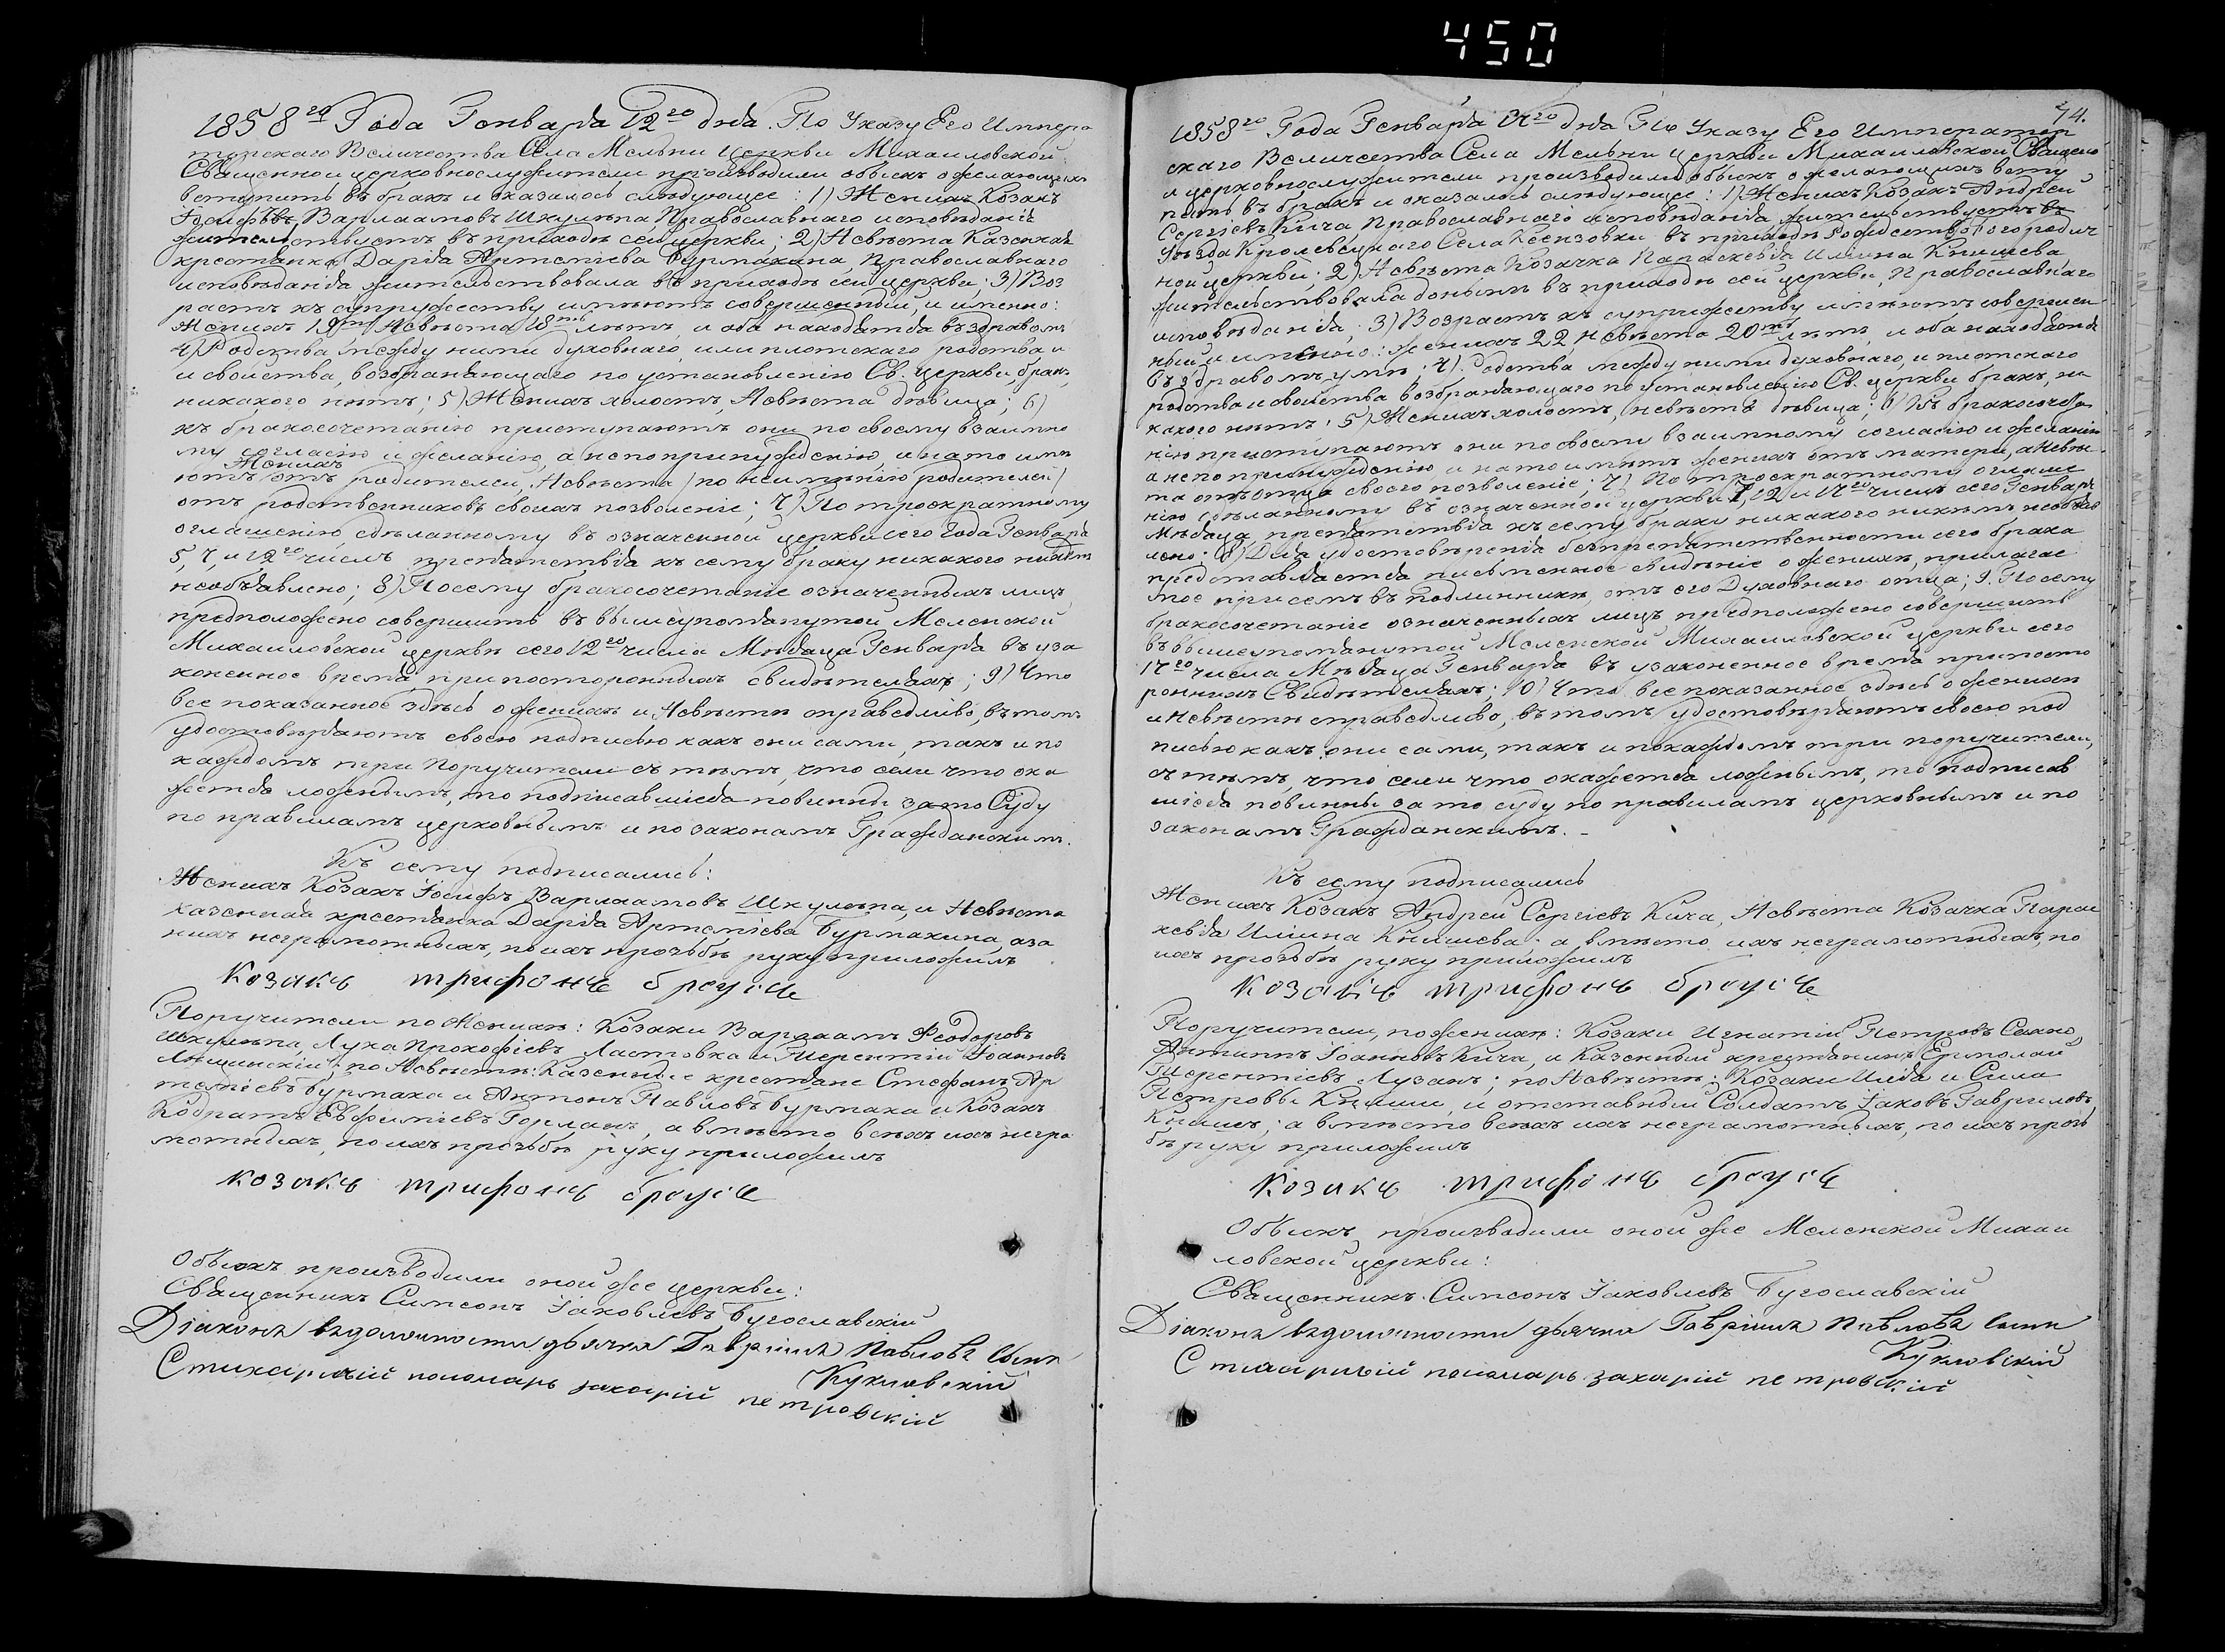 450
1858го Года Генваря 12го дня. По Указу Его Импера
торскаго Величества Села Мельни церкви Михаиловской
Священно и церковнослужители производили обыск о желающих
вступить въ бракъ и оказалось слѣдующее: 1) Женихъ Козакъ
Іосифъ Варлаамовъ Шкулѣпа, Православнаго исповѣданія
жительствуетъ въ приходѣ сей церкви; 2) Невѣста Казенная
крестьянка Дарія Артеміева Бурмакина, Православнаго
исповѣданія жительствовала въ приходѣ сей церкви; 3) Воз
растъ къ супружеству имѣютъ совершенный, и именно:
Женихъ 19ть Невѣста 18ть лѣтъ, и оба находятся въ здравомъ
4) Родства между ними духовнаго, или плотскаго родства и
и свойства, возбраняющаго по установленію Св. церкви, бракъ,
никакого нѣтъ; 5) Женихъ холостъ, Невѣста дѣвица; 6)
къ бракосочетанію приступаютъ они по своему взаимно
му согласію и желанію, а не по принужденію, и на то имѣ
Женихъ
ютъ отъ родителей, Невѣста /по неимѣнію родителей/
отъ родственниковъ своихъ позволеніе; 7) По троекратному
оглашенію сдѣланному въ означенной церкви сего Года Генваря
5, 7, и 12го числъ препятствія къ сему браку никакого никѣмъ
необъявлено; 8) Посему бракосочетаніе означенныхъ лицъ
предположено совершить въ вышеупомянутой Меленской
Михаиловской церквѣ сего 12го числа Мѣсяца Генваря въ уза
коненное время при постороннихъ свидѣтеляхъ; 9) Что
все показанное здѣсь о женихѣ и Невѣстѣ справедливо, въ томъ
удостовѣряютъ своею подписью какъ они сами, такъ и по
каждомъ три Поручители съ тѣмъ, что если что ока
жется ложнымъ, то подписавшіеся повинны за то Суду
по правиламъ церковнымъ и по законамъ Гражданскимъ.
Къ сему подписались:
Женихъ Козакъ Іосифъ Варлаамовъ Шкулѣпа, и Невѣста
казенная крестьянка Дарія Артеміева Бурмакина, а за
нихъ неграмотныхъ, по ихъ прозьбѣ руку приложилъ
козакъ трифонъ броусъ
Поручители по Женихѣ: Козаки Варлаамъ Феодоровъ
Шкулѣпа, Лука Прокофіевъ Ластовка и Терентій Іоанновъ
по Невѣстѣ: Казенные крестьяне Стефанъ Ар
теміевъ Бурмака и Антонъ Павловъ Бурмака и Козакъ
Кодратъ Евфиміевъ Горланъ, а вмѣсто всѣхъ ихъ негра
мотныхъ, по ихъ прозьбѣ руку приложилъ
козакъ трифонъ броусъ
Обыскъ производили оной же церкви:
Священникъ Симеонъ Іаковлевъ Бугославскій
Діаконъ въ должности дьячка Гавріилъ Павловъ сынъ
Кукловскій
Стихарный пономарь захарій петровскій
74.
1858го Года Генваря 17го дня По Указу Его Император
скаго Величества Села Мельни церкви Михаиловской Священо
и церковнослужители производили обыскъ о желающихъ всту
пить въ бракъ и оказалось слѣдующее: 1) Женихъ Козакъ Андрей
Сергіевъ Кича Православнаго исповѣданія жительствуетъ въ
Уѣзда Кролевецкаго Села Ксензовки въ приходѣ Рождество Богородич
ной церкви; 2) Невѣста Козачка Параскевія Илиина Книшева
жительствовала донынѣ въ приходѣ сей церкви, Православнаго
исповѣданія; 3) Возрастъ къ супружеству имѣютъ совершен
ный и именно: женихъ 22, Невѣста 20ть лѣтъ, и оба находятся
въ здравомъ умѣ; 4) Родства между ними духовнаго, и плотскаго
родства и свойства возбраняющаго по установленію Св. церкви бракъ, ни
какого нѣтъ; 5) Женихъ холостъ, невѣста дѣвица; 6) Къ бракосочета
нію приступаютъ они по своему взаимному согласію и желанію
а не по принужденію и на то имѣтъ женихъ отъ матери, а Невѣс
та отъ отца своего позволеніе; 7) По троекратному оглаше
нію сдѣланному въ означенной церкви 7, 12 и 17го числъ сего Генваря
Мѣсяца, препятствія къ сему браку никакого никѣмъ необъяв
лено; 8) Для удостовѣренія безпрепятственности сего брака
представляется письменное свидѣніе о женихѣ, прилагае
мое при семъ въ подлинникѣ, отъ его Духовнаго отца; 9. Посему
бракосочетаніе означенныхъ лицъ предположено совершить
въ вышеупомянутой Меленской Михаиловской церкви сего
17го числа Мѣсяца Генваря въ узаконенное время при посто
роннихъ Свидѣтеляхъ; 10) Что все показанное здѣсь о женихѣ
и невѣстѣ справедливо, въ томъ удостовѣряютъ своею под
писью какъ они сами, такъ и по каждомъ три поручители,
съ тѣмъ, что если что окажется ложнымъ, то подписав
шіеся повинны за то суду по правиламъ церковнымъ и по
законамъ Гражданскимъ. -
Къ сему подписались
Женихъ Козакъ Андрей Сергіевъ Кича, Невѣста Козачка Парас
кевія Илиина Книшева. а вмѣсто ихъ неграмотныхъ, по
ихъ прозьбѣ руку приложилъ
козакъ трифонъ броусъ
Поручители, по женихѣ: Козаки Игнатій Петровъ
Антипъ Іоанновъ Кича, и Казенный крестьянинъ Ермолай
Терентіевъ Лузанъ; по Невѣстѣ: Козаки Илія и Сила
Петровы Книши, и отставный Солдатъ Іаковъ Гавриловъ
Книшъ; а вмѣсто всѣхъ ихъ неграмотныхъ, по ихъ прозь
бѣ руку приложилъ
козакъ трифонъ броусъ
Обыскъ производили оной же Меленской Михаи
ловской церкви:
Священникъ Симеонъ Іаковлевъ Бугославскій
Діаконъ въ должности дьячка Гавріилъ Павловъ сынъ
Кукловскій
Стихарный пономарь захарій петровскій